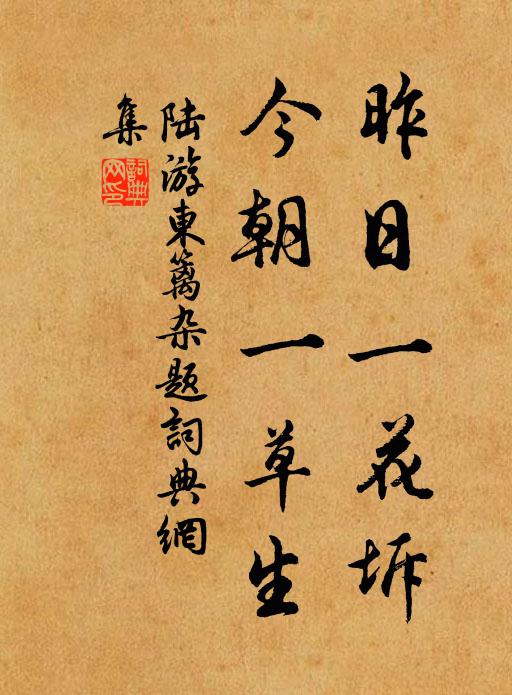 昨日一花坼
今朝一草生
陆游東篱杂题詞典網
集
詞典網印